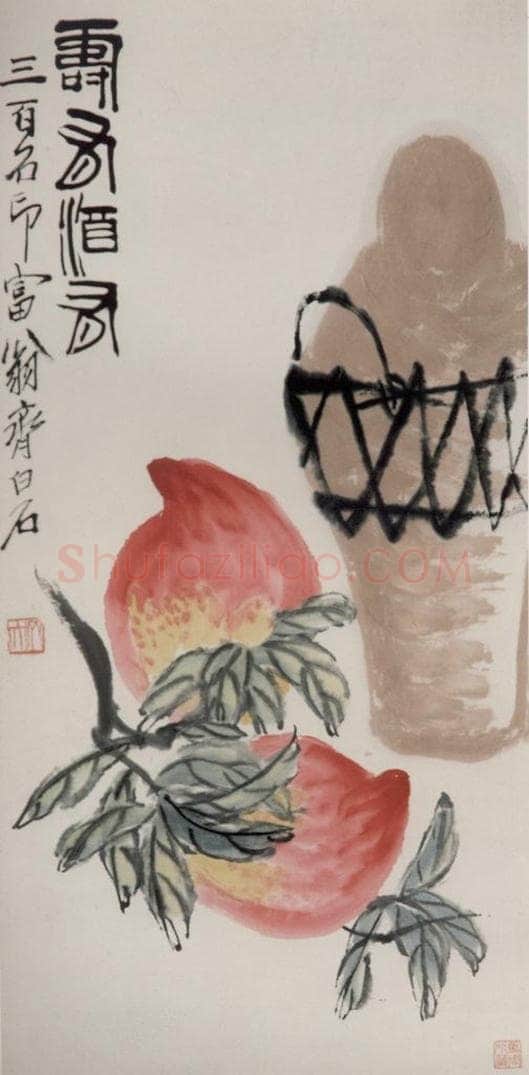 壽有酒有
三百石印富翁齊白石
Shufaziliao.COM